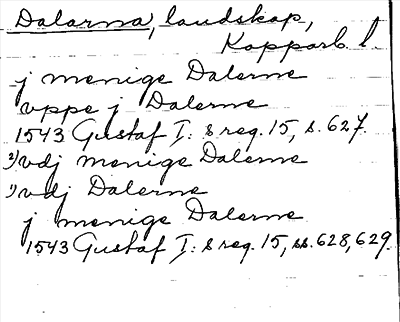 Dalarna, landskap,
Kopparb. l.
j menige Dalerne
vppe j Dalerne
1543 Gustaf I: s reg. 15, s. 627.
2) vdj menige Dalerne
1) vdj Dalerne
j menige Dalerne
1543 Gustaf I: s reg. 15, ss. 628, 629.